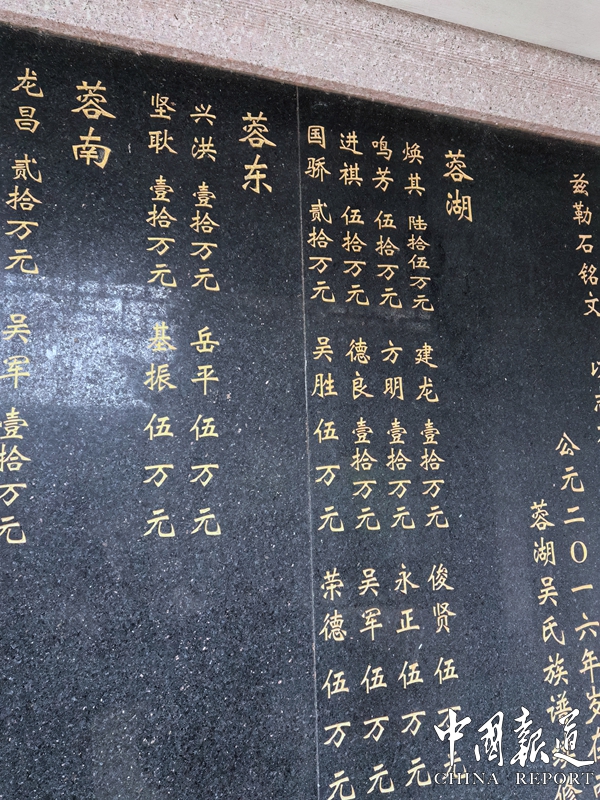 兹勒石铭文
公元二〇一六年岁在
蓉湖吴氏族谱
蓉湖
焕其 陆拾伍万元 建龙 壹拾万元 俊贤 伍万元
鸣芳 伍拾万元 方明 壹拾万元 永正 伍万元
进祺 伍拾万元 德良 壹拾万元 吴军 伍万元
国骄 贰拾万元 吴胜 伍万元 荣德 伍万元
蓉东
兴洪 壹拾万元 岳平 伍万元
坚耿 壹拾万元 基振 伍万元
蓉南
龙昌 贰拾万元 吴军 壹拾万元
中国报道
CHINA REPORT